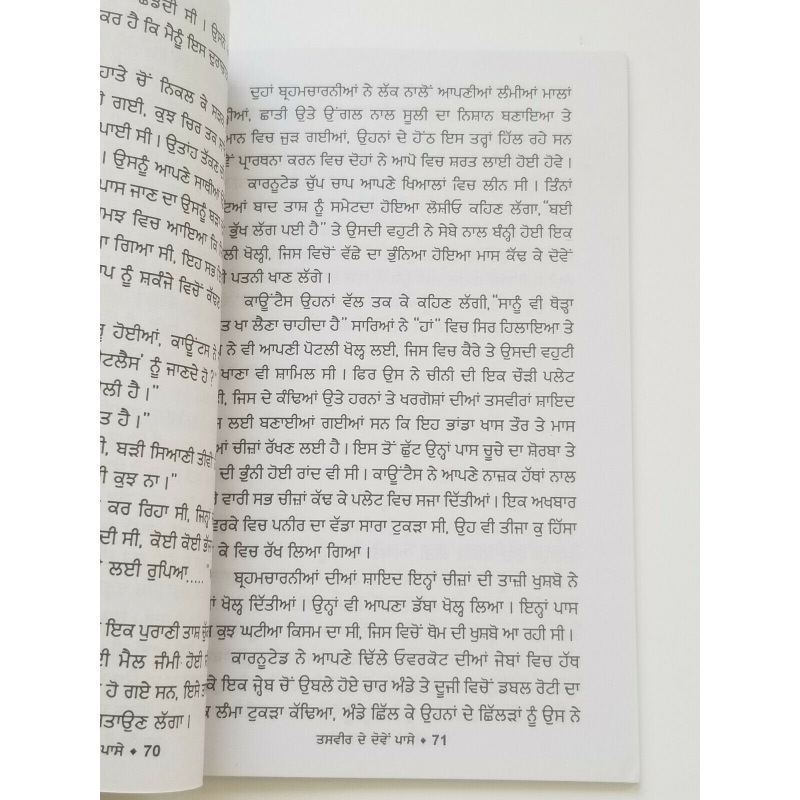 ਛੱਡਦੀ ਸੀ। ਉਸਨੇ
ਕਰ ਹੈ ਕਿ ਮੈਨੂੰ ਇਸ
ਹਾਤੇ ਚੋਂ ਨਿਕਲ ਕੇ
ਗਈ, ਕੁਝ ਚਿਰ ਤਕ
ਪਾਈ ਸੀ। ਉਤਾਂਹ ਤੱਕਣ
। ਉਸਨੂੰ ਆਪਣੇ ਸਾਥੀਆਂ
ਪਾਸ ਜਾਣ ਦਾ ਉਸਨੂੰ
ਮਝ ਵਿਚ ਆਇਆ ਕਿ
ਗਿਆ ਸੀ, ਇਹ ਸਭ
ਪ ਨੂੰ ਸ਼ਕੰਜੇ ਵਿਚੋਂ ਕੱਢਣ
ਹੋਈਆਂ, ਕਾਊਂਟਸ ਨੇ
ਟਲੈਸ' ਨੂੰ ਜਾਣਦੇ ਹੋ?"
ਲੀ ਹੈ।"
ਤ ਹੈ।"
ੀ, ਬੜੀ ਸਿਆਣੀ ਤੀਵੀਂ
ੀ ਕੁਝ ਨਾ।"
ਕਰ ਰਿਹਾ ਸੀ, ਜਿਨ੍ਹਾਂ
ਦੀ ਸੀ, ਕੋਈ ਕੋਈ
ਲਈ ਰੁਪਿਆ.....
ਇਕ ਪੁਰਾਣੀ ਤਾਸ਼
ਦੀ ਮੈਲ ਜੰਮੀ ਹੋਈ
ਹੋ ਗਏ ਸਨ, ਇਸੇ
ਤਾਉਣ ਲੱਗਾ।
ਪਾਸੇ ♦ 70
ਦੁਹਾਂ ਬ੍ਰਹਮਚਾਰਨੀਆਂ ਨੇ ਲੱਕ ਨਾਲੋਂ ਆਪਣੀਆਂ ਲੰਮੀਆਂ ਮਾਲਾਂ
ੀਆਂ, ਛਾਤੀ ਉਤੇ ਉਂਗਲ ਨਾਲ ਸੂਲੀ ਦਾ ਨਿਸ਼ਾਨ ਬਣਾਇਆ ਤੇ
ਆਨ ਵਿਚ ਜੁੜ ਗਈਆਂ, ਉਹਨਾਂ ਦੇ ਹੋਂਠ ਇਸ ਤਰ੍ਹਾਂ ਹਿੱਲ ਰਹੇ ਸਨ
ਵੇਂ ਪ੍ਰਾਰਥਨਾ ਕਰਨ ਵਿਚ ਦੋਹਾਂ ਨੇ ਆਪੋ ਵਿਚ ਸ਼ਰਤ ਲਾਈ ਹੋਈ ਹੋਵੇ।
ਕਾਰਨੂਟੇਡ ਚੁੱਪ ਚਾਪ ਆਪਣੇ ਖਿਆਲਾਂ ਵਿਚ ਲੀਨ ਸੀ। ਤਿੰਨਾਂ
ਟਿਆਂ ਬਾਦ ਤਾਸ਼ ਨੂੰ ਸਮੇਟਦਾ ਹੋਇਆ ਲੋਸ਼ੀਓ ਕਹਿਣ ਲੱਗਾ,"ਬਈ
ਭੁੱਖ ਲੱਗ ਪਈ ਹੈ" ਤੇ ਉਸਦੀ ਵਹੁਟੀ ਨੇ ਸੇਬੇ ਨਾਲ ਬੰਨ੍ਹੀ ਹੋਈ ਇਕ
ਲੀ ਖੋਲ੍ਹੀ, ਜਿਸ ਵਿਚੋਂ ਵੱਛੇ ਦਾ ਭੁੰਨਿਆ ਹੋਇਆ ਮਾਸ ਕੱਢ ਕੇ ਦੋਵੇਂ
ੀ ਪਤਨੀ ਖਾਣ ਲੱਗੇ।
ਕਾਊਂਟੈਸ ਉਹਨਾਂ ਵੱਲ ਤਕ ਕੇ ਕਹਿਣ ਲੱਗੀ,"ਸਾਨੂੰ ਵੀ ਥੋੜ੍ਹਾ
ਤ ਖਾ ਲੈਣਾ ਚਾਹੀਦਾ ਹੈ" ਸਾਰਿਆਂ ਨੇ "ਹਾਂ" ਵਿਚ ਸਿਰ ਹਿਲਾਇਆ ਤੇ
ਨੇ ਵੀ ਆਪਣੀ ਪੋਟਲੀ ਖੋਲ੍ਹ ਲਈ, ਜਿਸ ਵਿਚ ਕੈਰੇ ਤੇ ਉਸਦੀ ਵਹੁਟੀ
ਖਾਣਾ ਵੀ ਸ਼ਾਮਿਲ ਸੀ। ਫਿਰ ਉਸ ਨੇ ਚੀਨੀ ਦੀ ਇਕ ਚੌੜੀ ਪਲੇਟ
ੀ, ਜਿਸ ਦੇ ਕੰਢਿਆਂ ਉਤੇ ਹਰਨਾਂ ਤੇ ਖਰਗੋਸ਼ਾਂ ਦੀਆਂ ਤਸਵੀਰਾਂ ਸ਼ਾਇਦ
ਲਈ ਬਣਾਈਆਂ ਗਈਆਂ ਸਨ ਕਿ ਇਹ ਭਾਂਡਾ ਖਾਸ ਤੌਰ ਤੇ ਮਾਸ
ਆਂ ਚੀਜ਼ਾਂ ਰੱਖਣ ਲਈ ਹੈ। ਇਸ ਤੋਂ ਛੁੱਟ ਉਨ੍ਹਾਂ ਪਾਸ ਚੂਚੇ ਦਾ ਸ਼ੋਰਬਾ ਤੇ
ਦੀ ਭੁੰਨੀ ਹੋਈ ਰਾਂਦ ਵੀ ਸੀ। ਕਾਊਂਟੈਸ ਨੇ ਆਪਣੇ ਨਾਜ਼ਕ ਹੱਥਾਂ ਨਾਲ
ਵਾਰੀ ਸਭ ਚੀਜ਼ਾਂ ਕੱਢ ਕੇ ਪਲੇਟ ਵਿਚ ਸਜਾ ਦਿੱਤੀਆਂ। ਇਕ ਅਖਬਾਰ
ਵਰਕੇ ਵਿਚ ਪਨੀਰ ਦਾ ਵੱਡਾ ਸਾਰਾ ਟੁਕੜਾ ਸੀ, ਉਹ ਵੀ ਤੀਜਾ ਕੁ ਹਿੱਸਾ
ਕੇ ਵਿਚ ਰੱਖ ਲਿਆ ਗਿਆ।
ਬ੍ਰਹਮਚਾਰਨੀਆਂ ਦੀਆਂ ਸ਼ਾਇਦ ਇਨ੍ਹਾਂ ਚੀਜ਼ਾਂ ਦੀ ਤਾਜ਼ੀ ਖੁਸ਼ਬੋ ਨੇ
ਖੋਲ੍ਹ ਦਿੱਤੀਆਂ। ਉਨ੍ਹਾਂ ਵੀ ਆਪਣਾ ਡੱਬਾ ਖੋਲ੍ਹ ਲਿਆ। ਇਨ੍ਹਾਂ ਪਾਸ
ਕੁਝ ਘਟੀਆ ਕਿਸਮ ਦਾ ਸੀ, ਜਿਸ ਵਿਚੋਂ ਥੋਮ ਦੀ ਖੁਸ਼ਬੋ ਆ ਰਹੀ ਸੀ।
ਕਾਰਨੂਟੇਡ ਨੇ ਆਪਣੇ ਢਿੱਲੇ ਓਵਰਕੋਟ ਦੀਆਂ ਜੇਬਾਂ ਵਿਚ ਹੱਥ
ਕੇ ਇਕ ਜ਼ੇਬ ਚੋਂ ਉਬਲੇ ਹੋਏ ਚਾਰ ਅੰਡੇ ਤੇ ਦੂਜੀ ਵਿਚੋਂ ਡਬਲ ਰੋਟੀ ਦਾ
ਲੰਮਾ ਟੁਕੜਾ ਕੱਢਿਆ, ਅੰਡੇ ਛਿੱਲ ਕੇ ਉਹਨਾਂ ਦੇ ਛਿੱਲੜਾਂ ਨੂੰ ਉਸ ਨੇ
ਤਸਵੀਰ ਦੇ ਦੋਵੇਂ ਪਾਸੇ ♦ 71